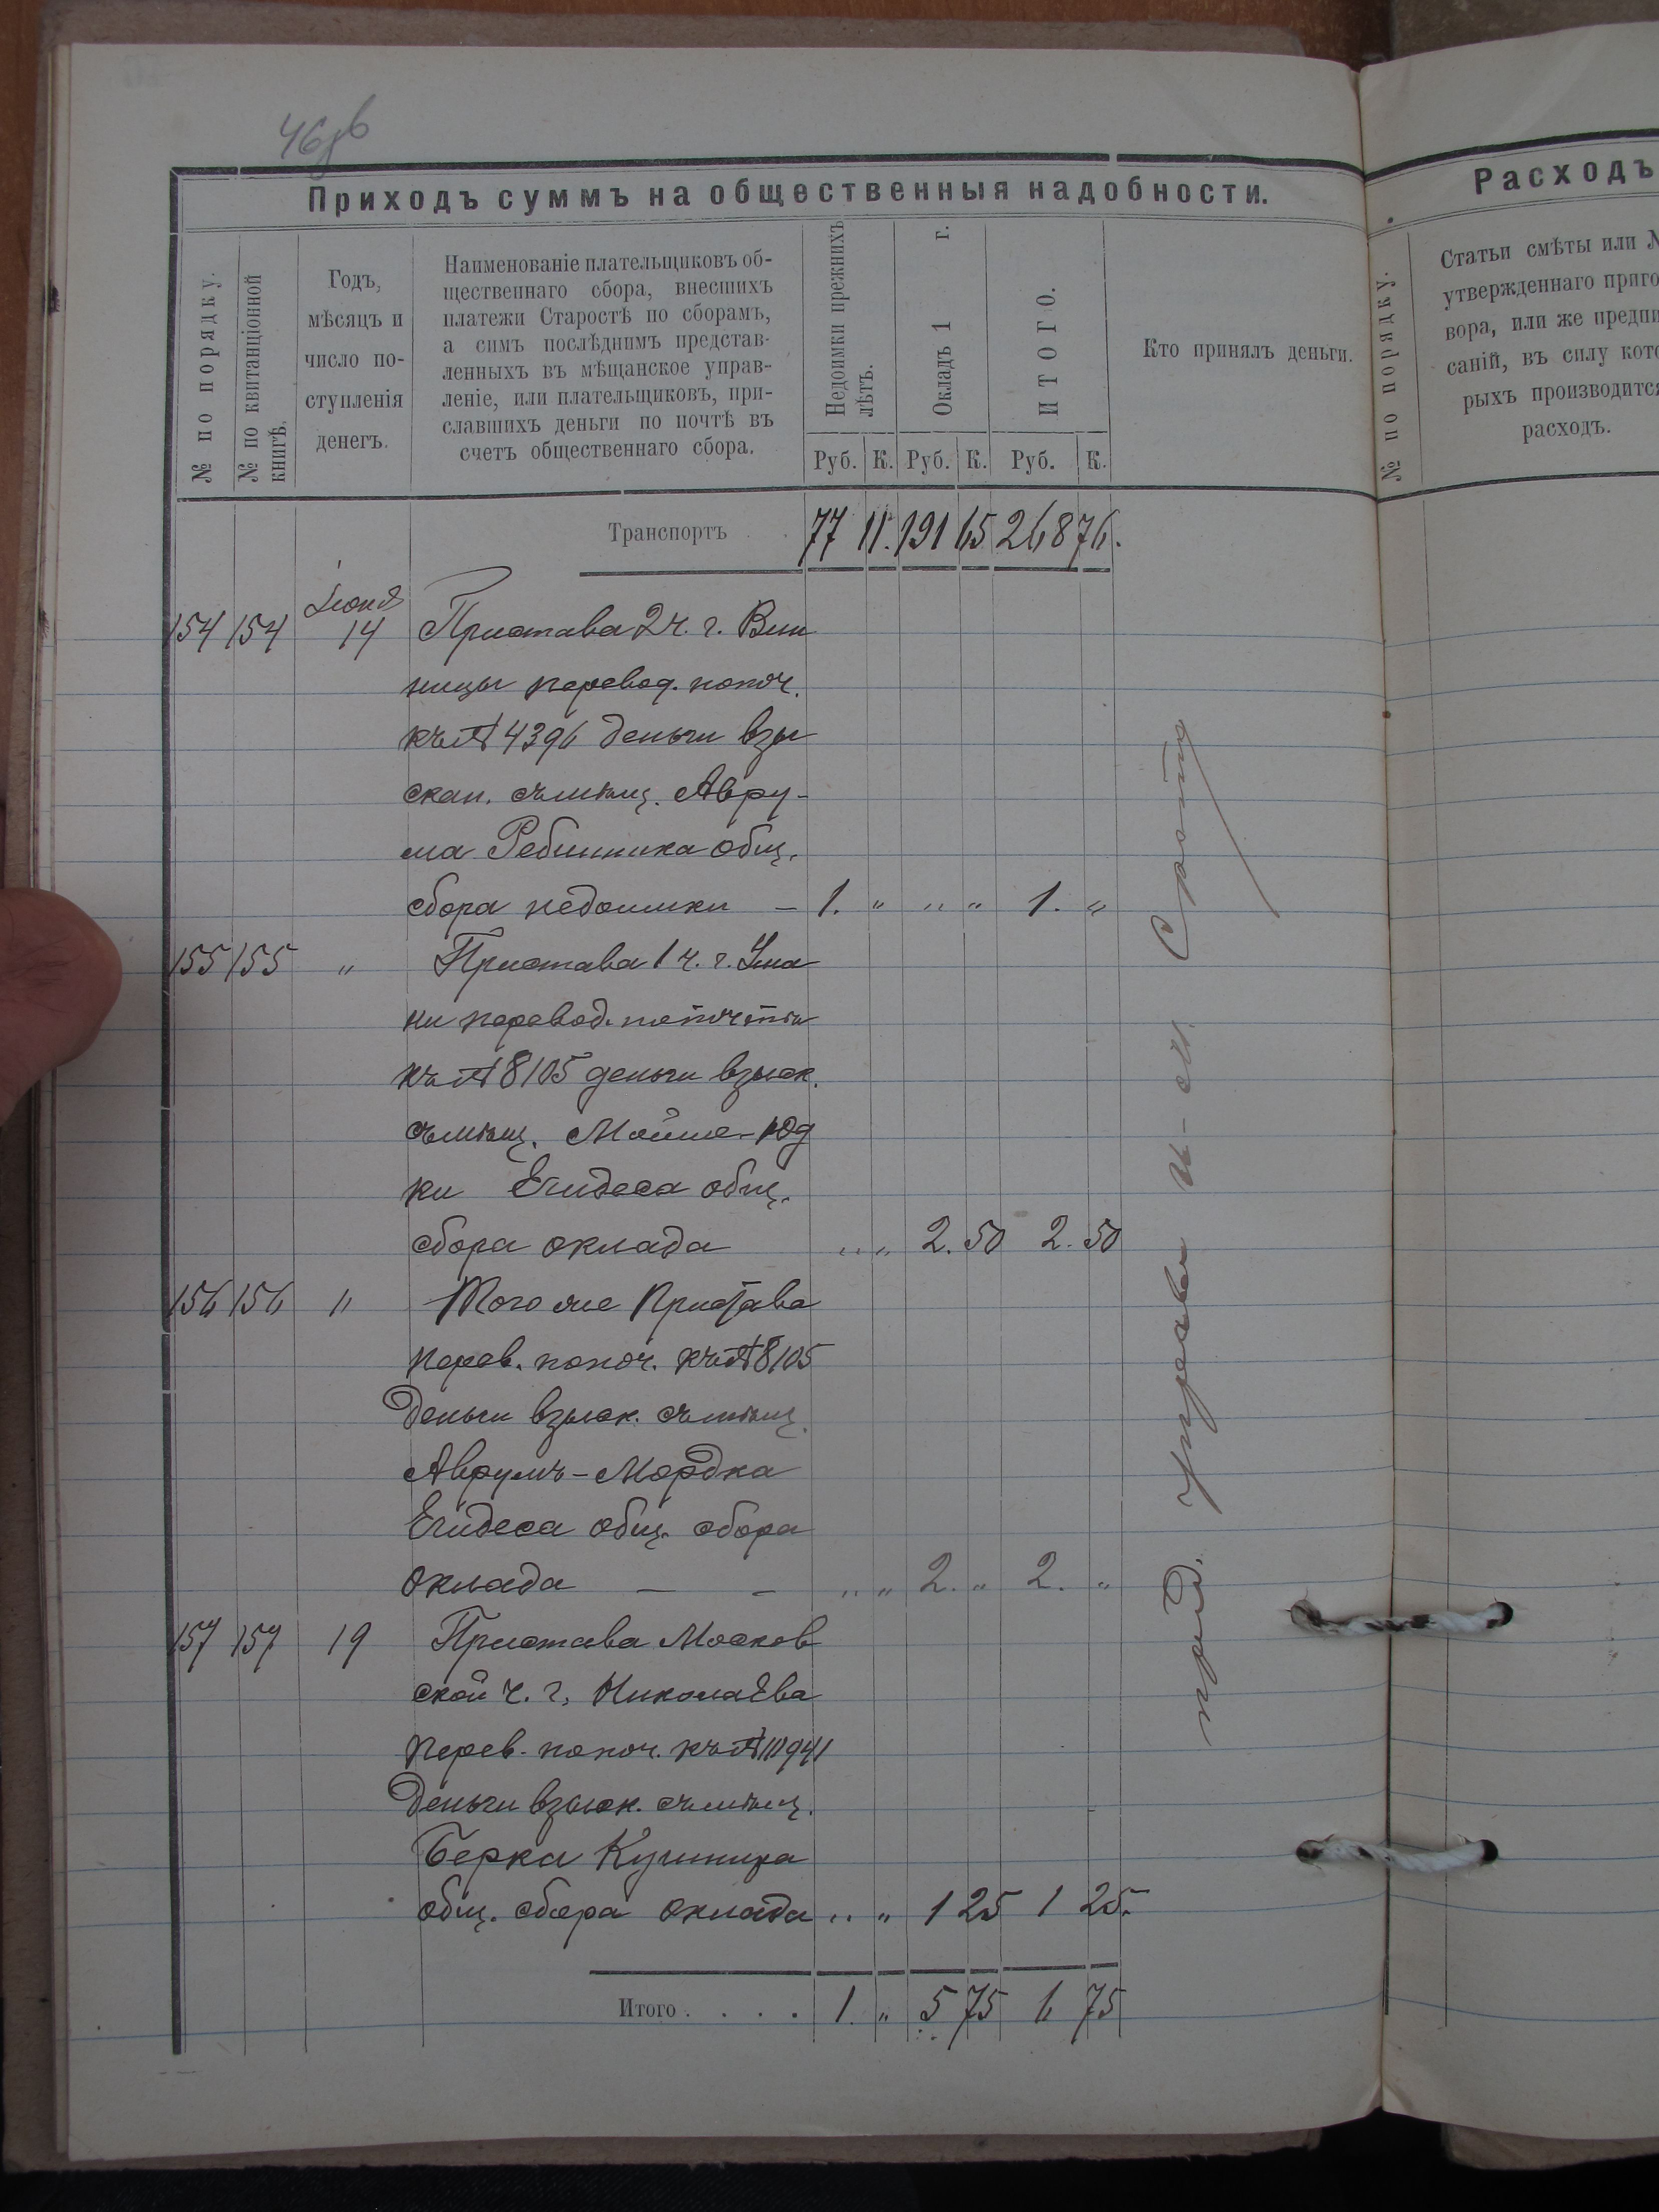 46об
Приходъ суммъ на общественныя надобности.
№ по порядку.
№ по квитанціонной книгѣ.
Годъ,
мѣсяцъ и
число по-
ступленія
денегъ.
Наименованіе плательщиковъ об-
щественнаго сбора, внесшихъ
платежи Старостѣ по сборамъ,
а симъ послѣднимъ представ-
ленныхъ въ мѣщанское управ-
леніе, или плательщиковъ, при-
славшихъ деньги по почтѣ въ
счетъ общественнаго сбора.
Недоимки прежнихъ лѣтъ.
Окладъ 1 г.
ИТОГО.
Руб. К. Руб. К. Руб. К.
Кто принялъ деньги.
Транспортъ 77 11. 191 65 268 76.
Іюня
154 154 14 Пристава 2 ч. г. Вин
ницы перевод. попоч.
къ № 4396 деньги взы
скан. съ мѣщ. Авру-
ма Ребинника общ.
сбора недоимки – 1. " " " 1. "
155 155 " Пристава 1 ч. г. Ума
ни перевод. по почтѣ
къ № 8105 деньги взыск.
съ мѣщ. Мойше-Юд
ки Егидеса общ.
сбора оклада " " 2. 50 2. 50
156 156 " Того же Пристава
перев. попоч. къ № 8105
деньги взыск. съ мѣщ.
Аврумъ-Мордка
Егидеса общ. сбора
оклада – – " " 2. " 2. "
157 157 19 Пристава Москов
ской ч. г. Николаева
перев. попоч. къ № 11941
деньги взыск. съ мѣщ.
Берка Кушнира
общ. сбора оклада " " 1 25 1 25.
Итого . . . . 1. " 5 75 6 75
управы
Расходъ
№ по порядку.
Статьи смѣты или №
утвержденнаго приго
вора, или же предпи
саній, въ силу кото
рыхъ производится
расходъ.